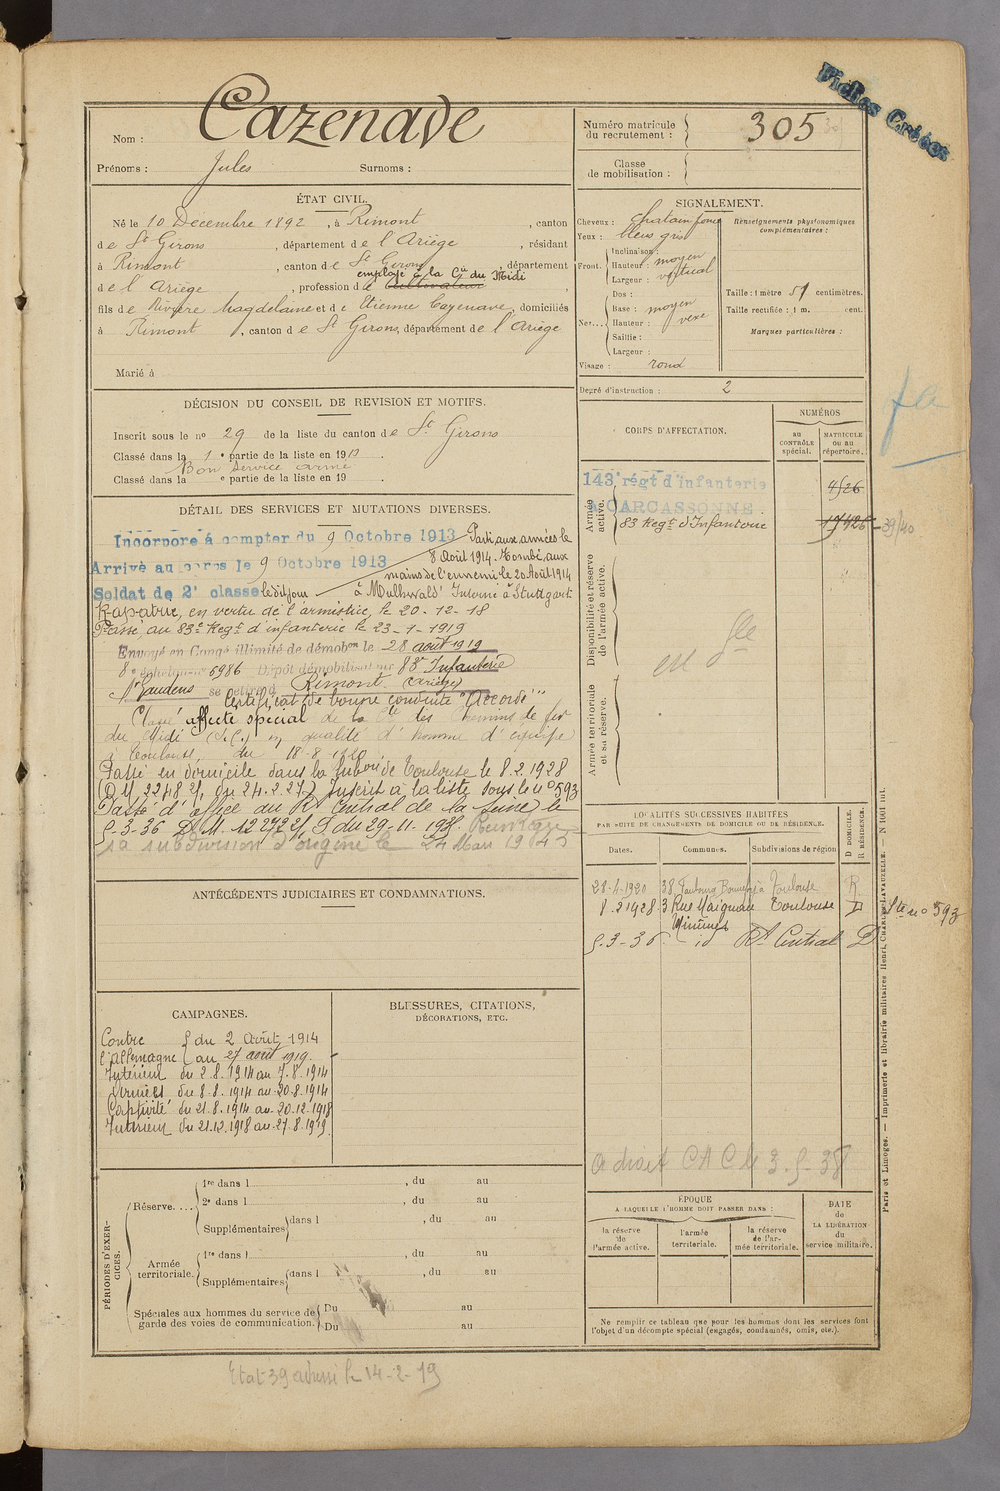 Fiches Créées
Nom : Cazenave
Prénoms : Jules Surnoms :
Numéro matricule du recrutement : 305
Classe de mobilisation :
ÉTAT CIVIL.
Né le 10 Décembre 1892, à Rimont, canton
de St Girons, département de l'Ariège, résidant
à Rimont, canton de St Girons, département
employé à la Cie du Midi
de l'Ariège, profession de cultivateur
fils de Rivère Magdelaine et de Etienne Cazenave, domiciliés
à Rimont, canton de St Girons, département de l'Ariège
Marié à
SIGNALEMENT.
Cheveux : chatain foncé
Yeux : bleus gris
Front. Inclinaison :
Hauteur : moyen
Largeur : vertical
Nez... Dos :
Base : moyen
Hauteur : vexe
Saillie :
Largeur :
Visage : rond
Renseignements physionomiques complémentaires :
Taille : 1 mètre 51 centimètres.
Taille rectifiée : 1 m. cent.
Marques particulières :
Degré d'instruction : 2
DÉCISION DU CONSEIL DE REVISION ET MOTIFS.
Inscrit sous le n° 29 de la liste du canton de St Girons
Classé dans la 1e partie de la liste en 1913
Bon service armé
Classé dans la e partie de la liste en 19
DÉTAIL DES SERVICES ET MUTATIONS DIVERSES.
Incorporé à compter du 9 Octobre 1913 Parti aux armées le
Arrivé au corps le 9 Octobre 1913 8 Août 1914. Tombé aux
mains de l'ennemi le 20 Août 1914
Soldat de 2e classe ledit jour à Mulhwald Interné à Stuttgart
Rapatrié, en vertu de l'armistice, le 20-12-18
Passé au 83e Regt d'infanterie le 23-1-1919
Envoyé en Congé illimité de démobon le 28 août 1919
8e échelon n° 6986 Dépôt démobilisateur 83e Infanterie
St Gaudens se retire à Rimont (Ariège)
Certificat de bonne conduite "Accordé"
Classé affecté spécial de la Cie des Chemins de fer
du Midi (S.C.) en qualité d'homme d'équipe
à Toulouse, du 18-8-1920
Passé en domicile dans la subon de Toulouse le 8.2.1928
(D.M. 2248 2/1 du 24.2.27) Inscrit à la liste sous le n° 593
Passé d'office au Rt Central de la Seine le
5-3-36 D.M. 12272 2/1 S du 29-11-1935.
sa subdivision d'origine le 24 Mars 1945
CORPS D'AFFECTATION.
NUMÉROS
AU CONTRÔLE spécial.
MATRICULE ou au répertoire.
Armée active.
143e régt d'infanterie
à CARCASSONNE 4526
83 Regt d'Infanterie 17426 39/40
Disponibilité et réserve de l'armée active.
Armée territoriale et sa réserve.
fa
ANTÉCÉDENTS JUDICIAIRES ET CONDAMNATIONS.
LOCALITÉS SUCCESSIVES HABITÉES
PAR SUITE DE CHANGEMENTS DE DOMICILE OU DE RÉSIDENCE.
Dates. Communes. Subdivisions de région D DOMICILE. R RÉSIDENCE.
28-4-1920 38 Faubourg Bonnefoy à Toulouse R
8.2.1928 3 Rue Maignan Toulouse D Ste n° 593
Minimes
5-3-36 id Rt Central D
a droit CAC le 3-5-38
CAMPAGNES.
Contre l'Allemagne du 2 Août 1914
au 27 août 1919.
Intérieur du 2.8.1914 au 7.8.1914
Armées du 8.8.1914 au 20.8.1914
Captivité du 21.8.1914 au 20.12.1918
Intérieur du 21.12.1918 au 27.8.1919
BLESSURES, CITATIONS, DÉCORATIONS, ETC.
PÉRIODES D'EXERCICES.
Réserve....
1re dans l , du au
2e dans l , du au
Supplémentaires dans l , du au
Armée territoriale.
1re dans l , du au
Supplémentaires dans l , du au
Spéciales aux hommes du service de garde des voies de communication.
Du au
Du au
ÉPOQUE
A LAQUELLE L'HOMME DOIT PASSER DANS :
la réserve de l'armée active.
l'armée territoriale.
la réserve de l'armée territoriale.
DATE de LA LIBÉRATION du service militaire.
Ne remplir ce tableau que pour les hommes dont les services font l'objet d'un décompte spécial (engagés, condamnés, omis, etc.).
Paris et Limoges. — Imprimerie et librairie militaires Henri CHARLES-LAVAUZELLE. — N 1601 int.
Etat 39 adressé le 14-2-19